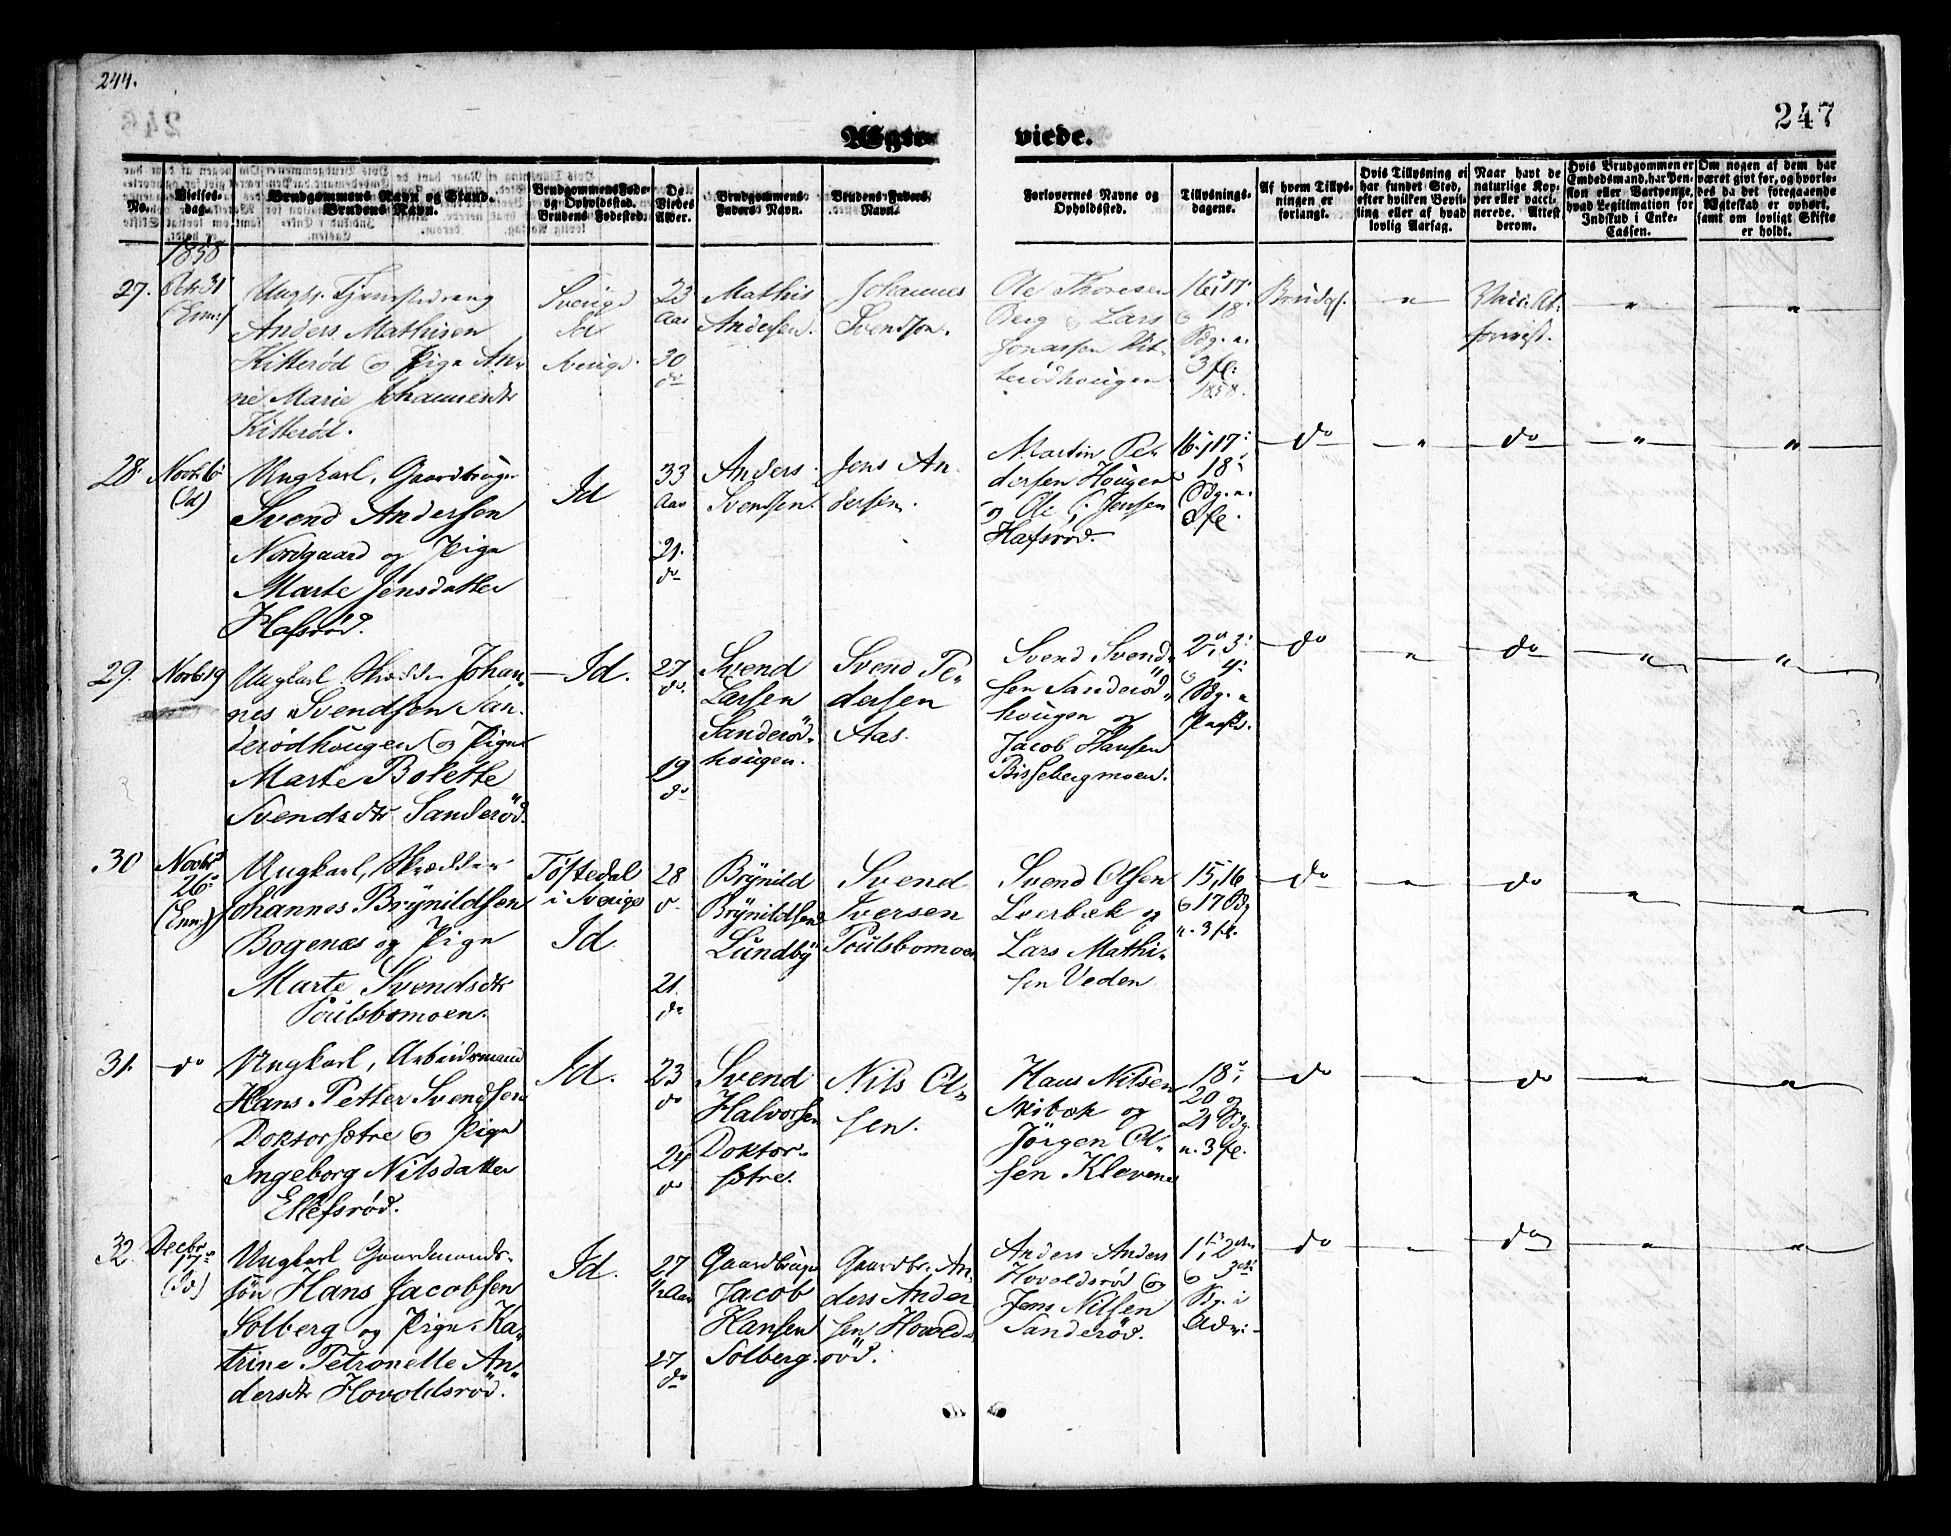 244.
247
Ægte-
viede.
No.
Vielses-
dag.
Brudgommens Navn og Stand.
Brudens Navn.
Brudgommens Føde-
og Opholdssted.
Brudens Fødested.
De
Viedes
Alder.
Brudgommens
Faders Navn.
Brudens Faders
Navn.
Forlovernes Navne og
Opholdssted.
Tillysnings-
dagene.
Af hvem Tillys-
ningen er
forlangt.
Hvis Tillysning ei
har fundet Sted,
efter hvilken Bevil-
ling eller af hvad
lovlig Aarsag.
Naar havt de
naturlige Kop-
per eller vacci-
nerede. Attest
derom.
Hvis Brudgommen er
Embedsmand, har Pen-
sion eller Vartpenge,
hvad Legitimation for
Indskud i Enke-
Cassen.
Om nogen af dem har
været givt før, og hvorle-
des da det foregaaende
Ægteskab er ophørt,
samt om lovligt Skifte
er holdt.
1858
27.
Octr. 31
(Enn:)
Ungk. Tjenestedreng
Anders Mathisen
Kitterød og Pige An-
ne Marie Johannesdtr
Kitterød.
Sverige
Id
Sverige.
23
Aar
30
do
Mathis
Andersen.
Johannes
Svendsen.
Ole Thoresen
Berg og Lars
Jonassen Kit-
terödhougen
16, 17
og 18
Sdg. n.
3fl:
1858.
Brudg.
"
Vacc. At.
forevist.
"
"
28.
Novb. 6
(Id)
Ungkarl, Gaardbruger
Svend Andersen
Nordgaard og Pige
Marte Jensdatter
Hafsrød.
Id
33
Aar
21.
do
Anders
Svendsen.
Jens An-
dersen.
Martin Pet-
dersen Hougen
og Ole J. Jensen
Hafsrød.
16, 17
og 18
Sdg. n.
3fl.
do
"
do
"
"
29.
Novb. 19
Ungkarl, Skrædder Johan-
nes Svendsen San-
derödhougen og Pige
Marte Bolette
Svendsdtr Sanderöd.
Id.
27
do.
19
do
Svend
Larsen
Sanderöd-
hougen.
Svend Pe-
dersen
Aas.
Svend Svend-
sen Sanderöd-
hougen og
Jacob Hansen
Bissebergmoen.
2, 3
og 4
Sdg. n.
Paaske.
do
"
do
"
"
30
Novbr
26
(Enn.)
Ungkarl, Skrædder
Johannes Brynildsen
Bogenæs og Pige
Marte Svendsdtr
Poulsbomoen.
Töftedal
i Sverige
Id.
28
do
21.
do
Brynild
Brynildsen
Lundby
Svend
Iversen
Poulsbomoen
Svend Olsen
Lverbæk og
Lars Mathi-
sen Veden
15, 16
og 17 Sdg
n. 3 fl.
do
"
do
"
"
31.
do
Ungkarl, Arbeidsmand
Hans Petter Svendsen
Doktorsætre og Pige
Ingeborg Nilsdatter
Ellefsrød.
Id.
23
do
24
do
Svend
Halvorsen
Doktor-
sætre.
Nils Ol-
sen.
Hans Nilsen
Skibæk og
Jörgen Ol-
sen Klevene
18,
20 og
21 Sdg.
n. 3 fl.
do
"
do
"
"
32.
Decbr
17
(Id)
Ungkarl Gaardmands-
søn Hans Jacobsen
Solberg og Pige Ka-
trine Petronelle An-
dersdtr Hovoldsröd.
Id.
27
1/2 Aar
27
do
Gaardbruger
Jacob
Hansen
Solberg.
Gaardbr. An-
ders Ander
sen Hovolds-
röd.
Anders Anders
Hovoldsröd og
Jens Nilsen
Sanderöd.
1, 2den
og 3die
Sdg. i
Advt.
do
"
do
"
"